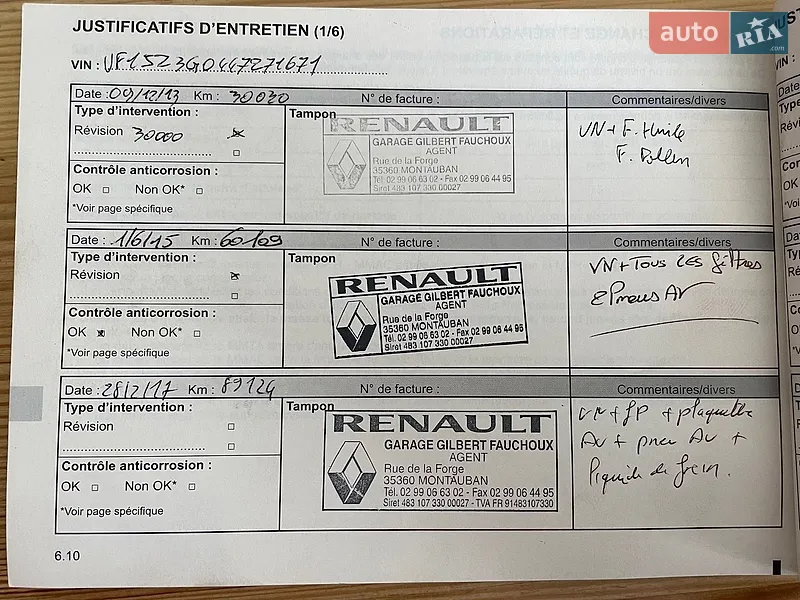 JUSTIFICATIFS D'ENTRETIEN (1/6)
auto RIA .com
VIN : VF15Z3G0447271671
Date : 09/12/13 Km : 30030 N° de facture : Commentaires/divers
Type d'intervention : Tampon
Révision 30000
RENAULT
GARAGE GILBERT FAUCHOUX
AGENT
Rue de la Forge
35360 MONTAUBAN
Tél. 02 99 06 63 02 - Fax 02 99 06 44 95
Siret 483 107 330 00027
VN + F. Huile
F. Pollen
Contrôle anticorrosion :
OK Non OK*
*Voir page spécifique
Date : 1/6/15 Km : 60109 N° de facture : Commentaires/divers
Type d'intervention : Tampon
Révision
RENAULT
GARAGE GILBERT FAUCHOUX
AGENT
Rue de la Forge
35360 MONTAUBAN
Tél. 02 99 06 63 02 - Fax 02 99 06 44 95
Siret 483 107 330 00027
VN + TOUS LES filtres
2 Pneus AV
Contrôle anticorrosion :
OK x Non OK*
*Voir page spécifique
Date : 28/2/17 Km : 89124 N° de facture : Commentaires/divers
Type d'intervention : Tampon
Révision
RENAULT
GARAGE GILBERT FAUCHOUX
AGENT
Rue de la Forge
35360 MONTAUBAN
Tél. 02 99 06 63 02 - Fax 02 99 06 44 95
Siret 483 107 330 00027 - TVA FR 91483107330
VN + FP + plaquette
AV + pneu AV +
liquide de frein.
Contrôle anticorrosion :
OK Non OK*
*Voir page spécifique
6.10